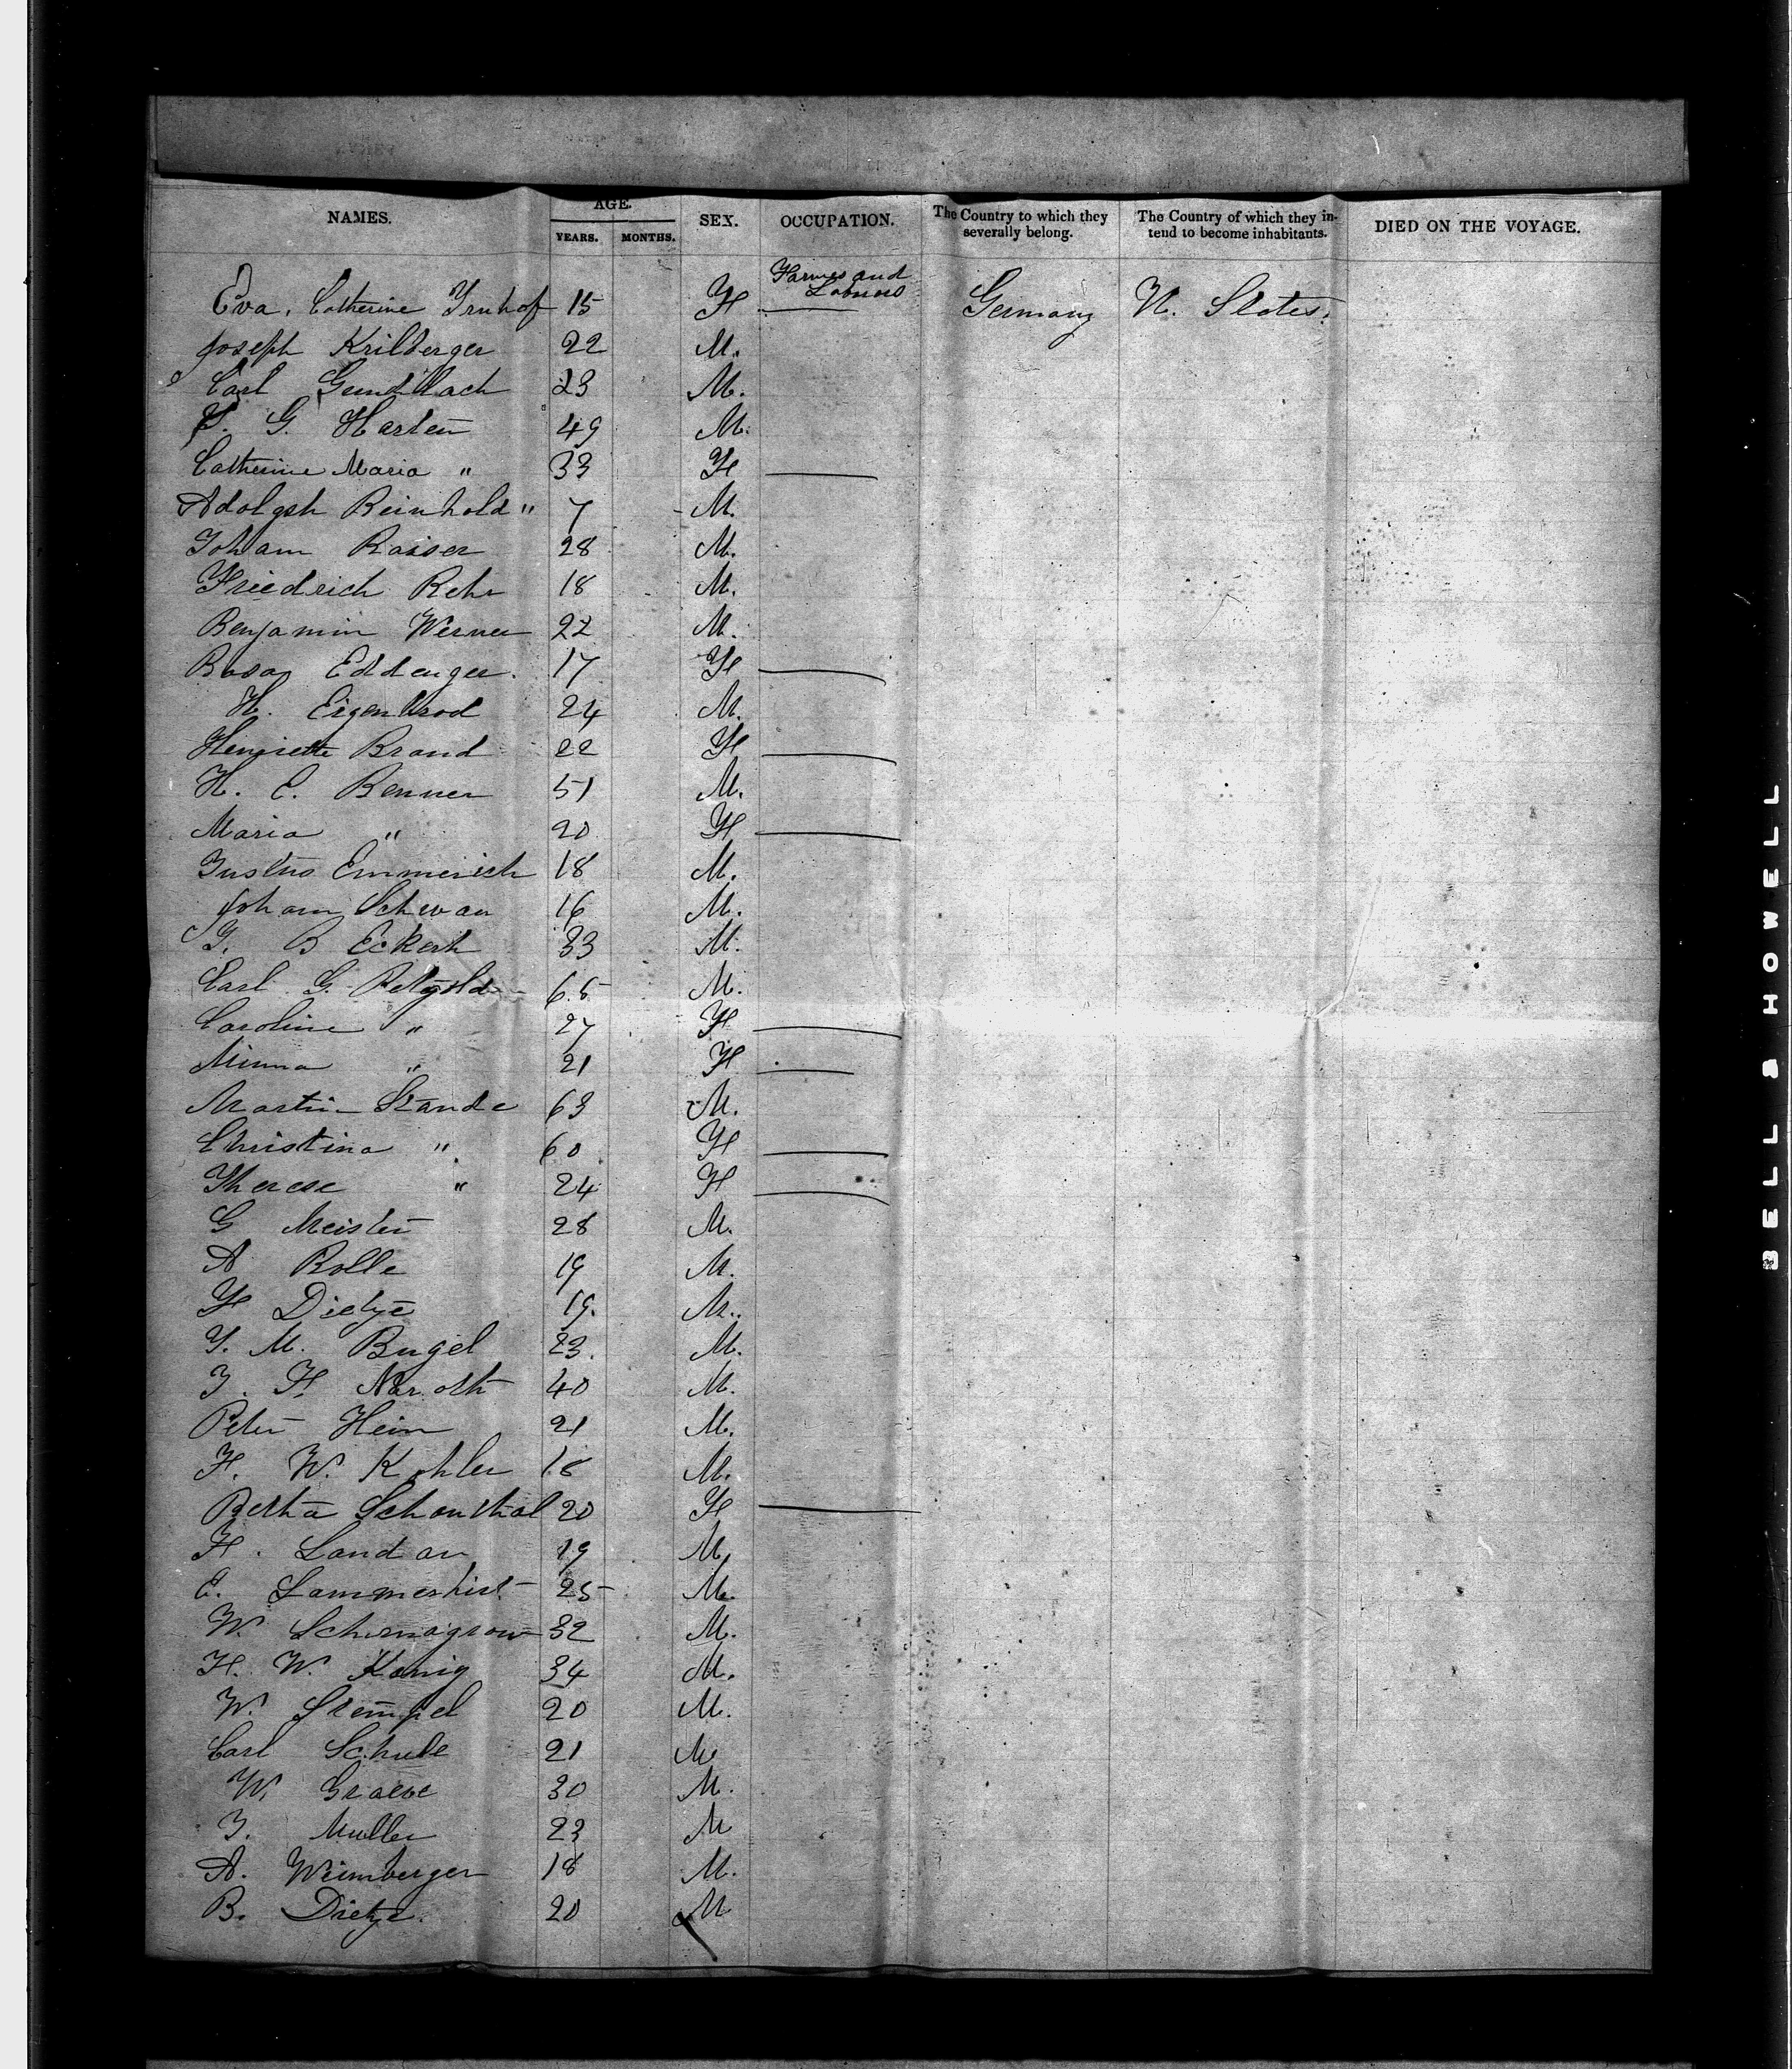 NAMES. AGE. YEARS. MONTHS. SEX. OCCUPATION. The Country to which they severally belong. The Country of which they intend to become inhabitants. DIED ON THE VOYAGE.
Farmers and
Eva. Catherine 15 F Labures Germany U. States.
Joseph Krilberger 22 M.
Carl Gundllach 23 M.
G. Harten 49 M.
Catherine Maria " 33 F
Adolgsh Reinhold " 7 M.
Joham Raiser 28 M.
Friedrich Rehr 18 M.
Benjamin Werner 22 M.
Rosa 17 F
H. Eigenbrod 24 M.
Henriette Brand 22 F
H. C. Benner 51 M.
Maria " 20 F
Justus Emmerich 18 M.
Joham Schwan 16 M.
J. B Eckerh 33 M.
Carl G. Petzold 65 M.
Caroline " 27 F
Minna " 21 F
Martin Stande 63 M.
Christina " 60 F
Therese " 24 F
G Meister 28 M.
A Rolle 19 M.
F Dietze 19. M.
J. M. Bugel 23. M.
J. F. 40 M.
Peter Hein 21 M.
F. W. Kohler 18 M.
Bertha Schonthal 20 F
F. Landau 19 M.
C. Lammerhirt 25 M.
W. 32 M.
F. W. Konig 34 M.
W. Stempel 20 M.
Carl Schule 21 M
W. Graeve 30 M.
J. Muller 23 M
A. Weimberger 18 M.
B. Dietze. 20 M
BELL & HOWELL